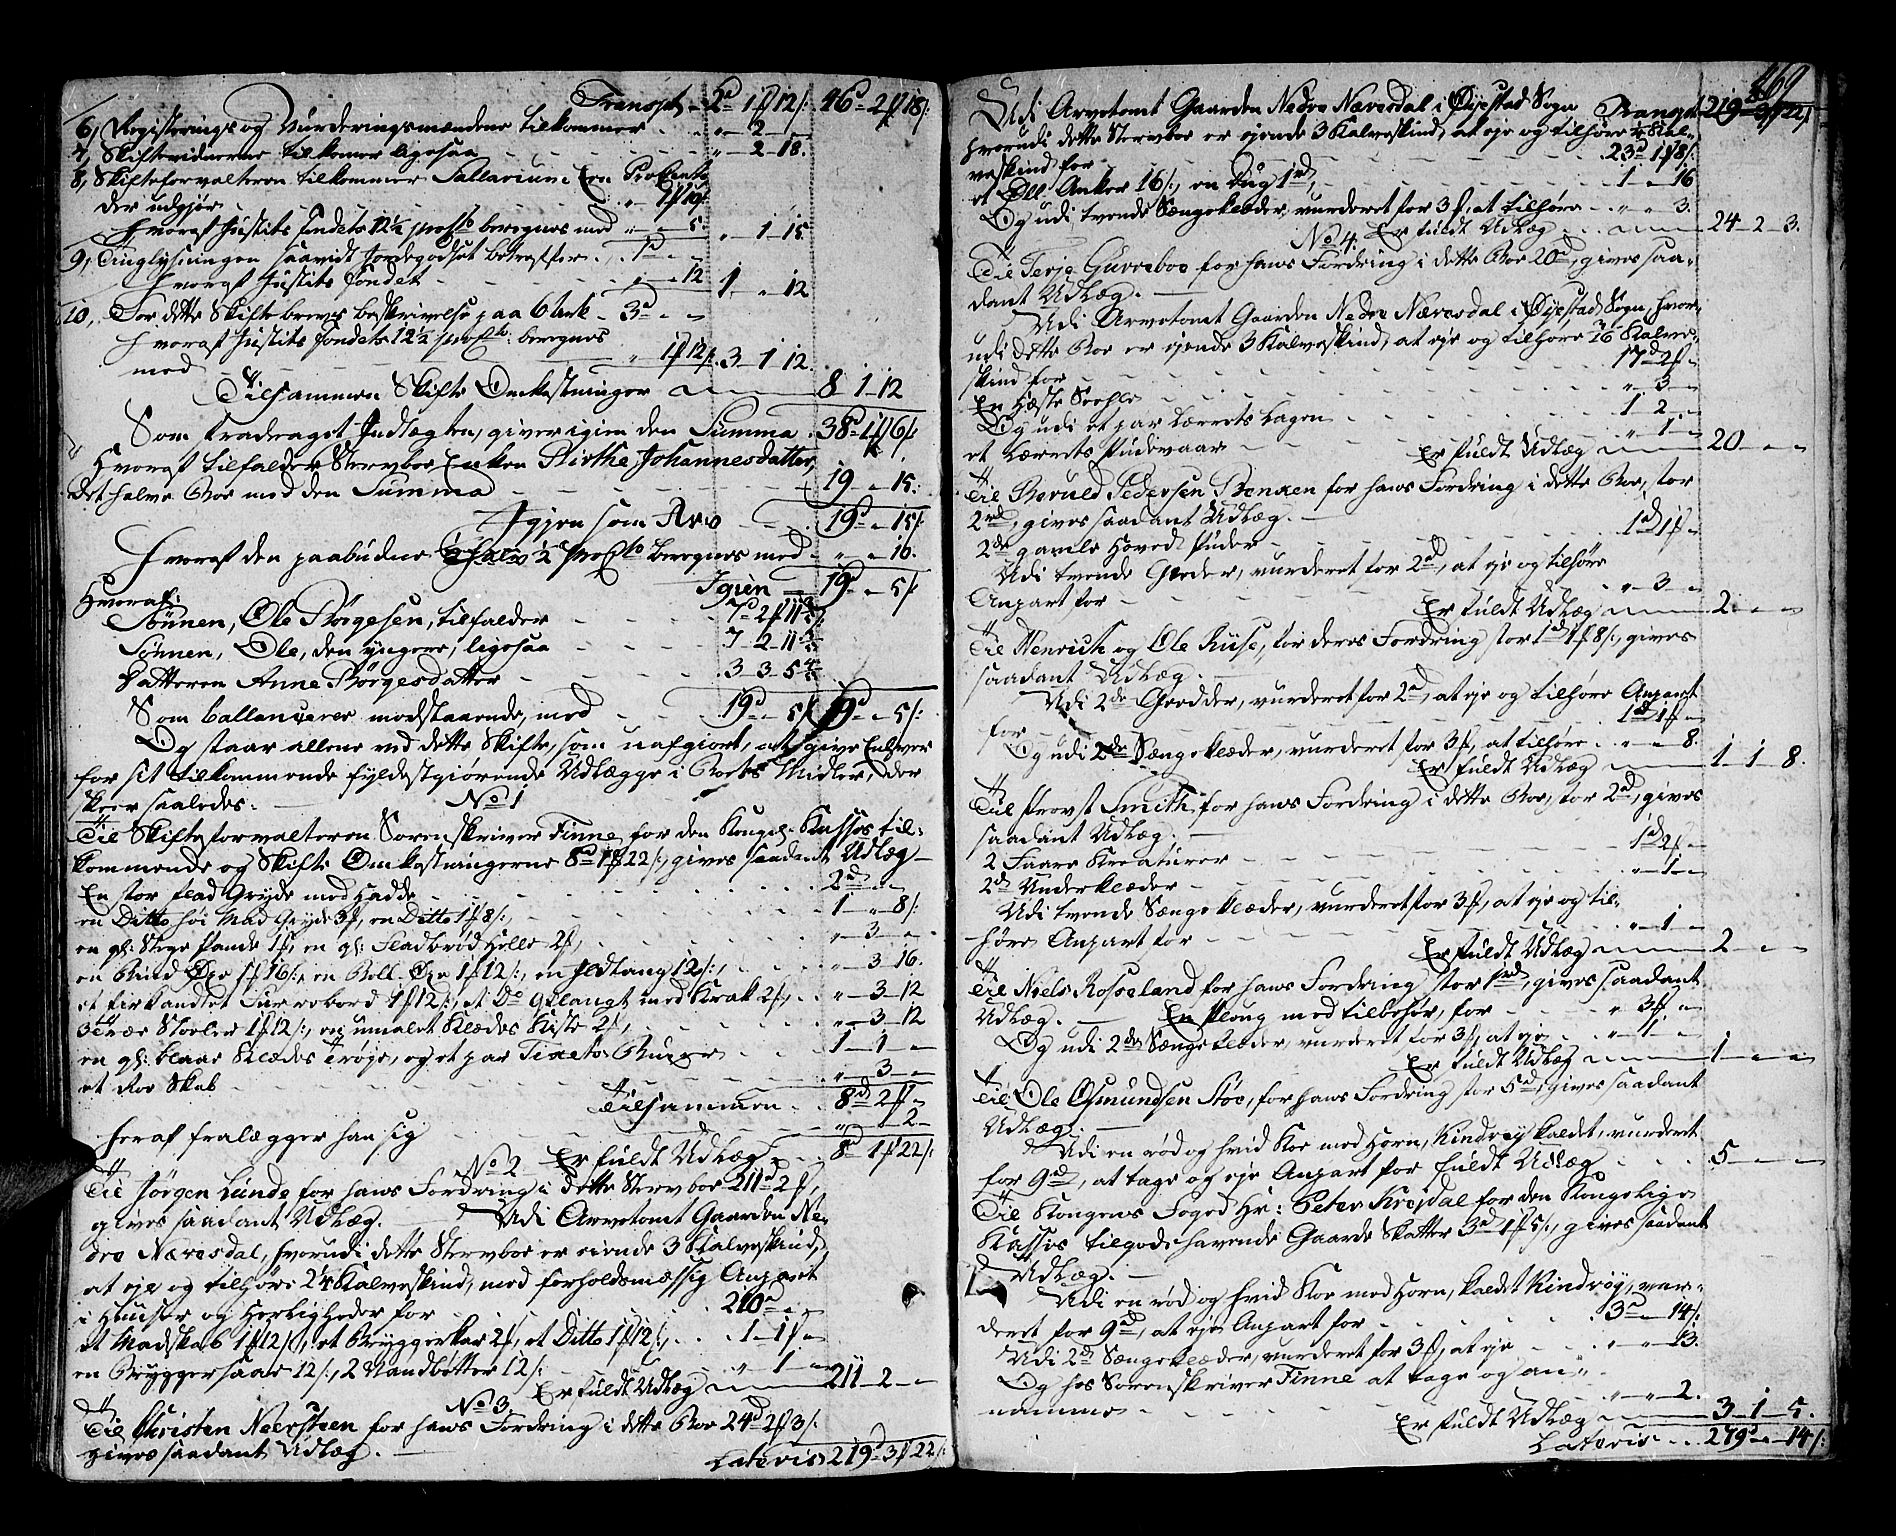 Transpt 2d 1f 12/: 46d 2f 18/:
6, Registerings og Vurderingsmændene tilkommer - - " 2 "
7, Skiftevidnerne tilkomer ligesaa - - " 2 18.
8, Skifteforvalteren tilkommer Sallarium Een ProCento
der udgjør - - " 1f 10/:
hvoraf Justits fondets 12½ proCto beregnes med " " 5. " 1 15
9, Tinglysningen saavidt Jordegodset betræffer .. 1d " "
hvoraf Justits fondet - - " " 12 1 " 12
10, For dette Skiftebrevs beskrivelse paa 6 Ark - 3d " "
hvoraf Justits fondets 12½ proCto: beregnes
med - - " 1f 12/: 3 1 12.
Tilsammen Skifte Omkostninger 8 1 12
Som fradraget Indtægten, giver igien den Summa . 38d 1f 6/:
Hvoraf tilfalder Stervboe Enken Birthe Johannesdatter,
det halve Boe med den Summa - - 19 " 15:
Igjen som Arv - 19d " 15/:
Hvoraf den paabudne ½ proCto beregnes med - " " 10.
Igien - 19d " 5/:
Hvoraf:
Sønnen, Ole Børgesen, tilfalder - - 7d 2f 11
Sønnen, Ole, den yngere, ligesaa - - 7 2 11
Datteren Anne Børgesdatter - - 3 3 5
Som ballancerer modstaaende, med - - 19d " 5/: 19d " 5/:
Og staar allene ved dette Skifte, som uafgiort, at give Enhver
for sit tilkommende fyldestgjørende Udlægge i Boets Midler, der
skeer saaledes. No 1
Til Skifteforvalteren Sorenskriver Finne, for den Kongel. Kasses til-
kommende og Skifte Omkostningerne 8d 1f 22/:, gives saadant Udlæg -
En stor flad Gryde med Hadde - - 2d " "
en Ditto høi Mad Gryde 3f, en Ditto 1f 8/:, - - 1 " 8/:
en gl: Stege Pande 1f, en gl: Fladbrød Helle 2f, - - " 3 "
en Bind Øxe 1f 16/:, en Boll-Øxe 1f 12/:, en Ildtang 12/:, - " 3 16.
et firkandtet Furrebord 1f 12/:, et Do aflangt med Krak 2f, - " 3 12
3 Træe Stoeler 1f 12/:, en umalet Klædes Kiste 2f, - - " 3 12
en gl: blaae Klædes Trøje, og et par Buxer - - 1 1 "
et Roe Skab - - " 3 "
Tilsammen - 8d 2f "
heraf fralægger han sig - - " " 2
No 2 Er fuldt Udlæg - 8d 1f 22/:
Til Jørgen Lunde for hans Fordring i dette Stervboe 211d 2f,
gives saadant Udlæg. Udi Arvetomt Gaarden Ne-
dre Næresdal, hvorudi dette Stervboe er eiende 3 Kalveskind,
at eje og tilhøre 2¼ Kalveskind, med forholdsmæssig Anpart
i Huuser og Herligheder for - - 210d " "
et Madskab 1f 12/:, et Bryggerkar 2f, et Ditto 1f 12/:, - 1 1f "
en Bryggersaae 12/:, 2 Vandbøtter 12/: - " 1 "
No 3. Er fuldt Udlæg 211 2 "
Til Christen Neersteen for hans Fordring i dette Boe 24d 2f 3/:
gives saadant Udlæg. Lateris 219d 3f 22/:
469
Udi Arvetomt Gaarden Nedre Næresdal i Øyestad Sogn Transpt 219d 3f 22/:
hvorudi dette Stervboe er ejende 3 Kalveskind, at eje og tilhøre ¼ Kal-
veskind for - - 23d 1f 8/:
et Øll Anker 16/:, en Dug 1rd, - - 1 " 16
Og udi tvende Sængeklæder, vurderet for 3f, at tilhøre - " " 3.
No 4. Er fuldt Udlæg - 24 2 3.
Til Terje Gurreboe for hans Fordring i dette Boe 20d, gives saa-
dant Udlæg.
Udi Arvetomt Gaarden Nedre Næresdal i Øyestad Sogn, hvor-
udi dette Boe er ejende 3 Kalveskind, at eje og tilhøre 3/16 Kalve-
skind for - - 17d 2f "
En Hæste Sæhle - - " 3 "
Og udi et par Lærrets Lagen - - 1 2 "
et Lærrets Pudevaar - - " 1 "
Er fuldt Udlæg 20 " "
Til Beruld Pedersen for hans Fordring i dette Boe, stor
2rd, gives saadant Udlæg.
2de gamle Hoved Puder - - 1d 1f "
Udi tvende Gryder, vurderet for 2d, at eje og tilhøre
Anpart for - - " 3 "
Er fuldt Udlæg 2 " "
Til Henrich og Ole Ruse, for deres Fordring stor 1d 1f 8/:, gives
saadant Udlæg.
Udi 2de Gryder, vurderet for 2d, at eje og tilhøre Anpart
for - - 1d 1f "
Og udi 2de Sængeklæder, vurderet for 3f, at tilhøre - " " 8.
Er fuldt Udlæg 1 1 8.
Til Provst Smith for hans Fordring i dette Boe, stor 2d, gives
saadant Udlæg.
2 Faare Kreaturer - - 1d 2f "
2de Underklæder - - " 1 "
Udi tvende Sængeklæder, vurderet for 3f, at eje og til-
høre Anpart for - - " 1 "
Er fuldt Udlæg 2 " "
Til Niels Roseland for hans Fordring stor 1rd, gives saadant
Udlæg. En Ploug med tilbehør, for - - " 3f "
Og udi 2de Sængeklæder, vurderet for 3f, at eje - " 1 "
Er fuldt Udlæg 1 " "
Til Ole Osmundsen Støe, for hans Fordring stor 5d, gives saadant
Udlæg.
Udi en rød og hvid Koe med Horn, Rindrøy kaldet, vurderet
for 9d, at tage og eje Anpart for fuldt Udlæg - - 5 " "
Til Kongens Foged Hr: Peter Krejdal for den Kongelige
Kasses tilgodehavende Gaarde Skatter 3d 1f 5/:, gives saadant
Udlæg.
Udi en rød og hvid Koe med Horn, kaldet Rindrøy, vur-
deret for 9d, at eje Anpart for - - 3d " 14/:
Udi 2de Sængeklæder, vurderet for 3f, at eje - " " 13.
Og hos Sorenskriver Finne at tage og an-
namme - - " " 2.
Er fuldt Udlæg 3 1 5.
Lateris - 279d " 14/: